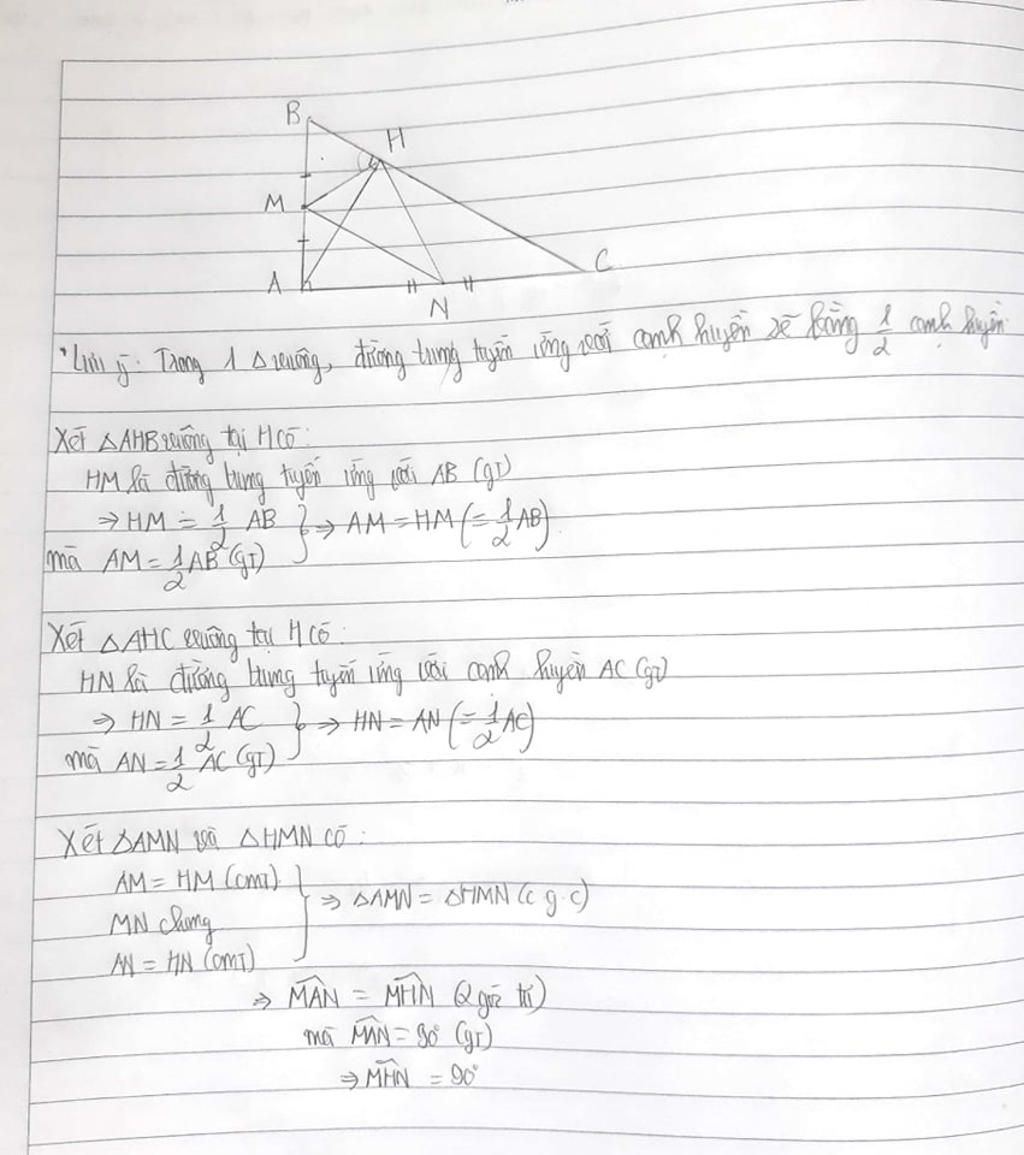 B
H
M
A
N
C
*Lưu ý: Trong 1 Δ vuông, đường trung tuyến ứng với cạnh huyền sẽ bằng 1/2 cạnh huyền.
Xét ΔAHB vuông tại H có:
HM là đường trung tuyến ứng với AB (gt)
⇒ HM = 1/2 AB
mà AM = 1/2 AB (gt)
} ⇒ AM = HM (= 1/2 AB)
Xét ΔAHC vuông tại H có:
HN là đường trung tuyến ứng với cạnh huyền AC (gt)
⇒ HN = 1/2 AC
mà AN = 1/2 AC (gt)
} ⇒ HN = AN (= 1/2 AC)
Xét ΔAMN và ΔHMN có:
AM = HM (cmt)
MN chung
AN = HN (cmt)
} ⇒ ΔAMN = ΔHMN (c g.c)
⇒ M̂AN = M̂HN (2 góc tứ)
mà M̂AN = 90° (gt)
⇒ M̂HN = 90°